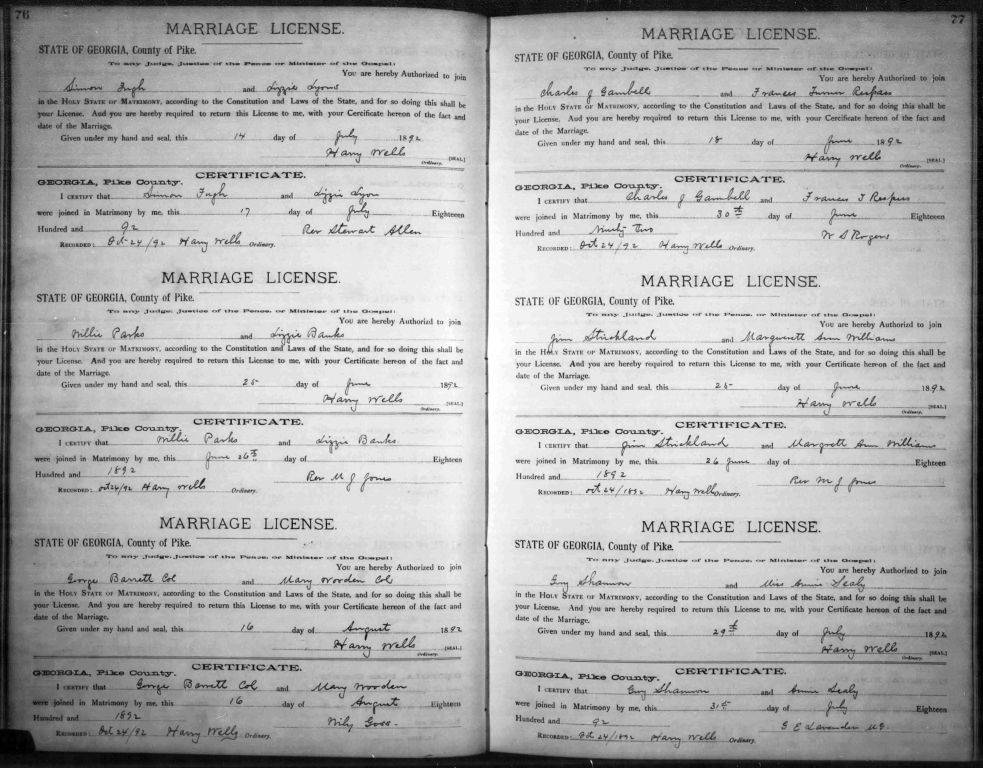 76
MARRIAGE LICENSE.
STATE OF GEORGIA, County of Pike.
To any Judge, Justice of the Peace or Minister of the Gospel:
You are hereby Authorized to join
Simon Fugh and Lizzie Lyons
in the HOLY STATE OF MATRIMONY, according to the Constitution and Laws of the State, and for so doing this shall be
your License. And you are hereby required to return this License to me, with your Certificate hereon of the fact and
date of the Marriage.
Given under my hand and seal, this 14 day of July 1892
Harry Wells [SEAL.]
Ordinary.
CERTIFICATE.
GEORGIA, Pike County.
I CERTIFY that Simon Fugh and Lizzie Lyon
were joined in Matrimony by me, this 17 day of July Eighteen
Hundred and 92 Rev Stewart Allen
RECORDED: Oct 24/92 Harry Wells Ordinary.
MARRIAGE LICENSE.
STATE OF GEORGIA, County of Pike.
To any Judge, Justice of the Peace, or Minister of the Gospel:
You are hereby Authorized to join
Willie Parks and Lizzie Banks
in the HOLY STATE OF MATRIMONY, according to the Constitution and Laws of the State, and for so doing this shall be
your License. And you are hereby required to return this License to me, with your Certificate hereon of the fact and
date of the Marriage.
Given under my hand and seal, this 25 day of June 1892
Harry Wells [SEAL.]
Ordinary.
CERTIFICATE.
GEORGIA, Pike County.
I CERTIFY that Willie Parks and Lizzie Banks
were joined in Matrimony by me, this June 26th day of Eighteen
Hundred and 1892 Rev M J Jones
RECORDED: Oct 24/92 Harry Wells Ordinary.
MARRIAGE LICENSE.
STATE OF GEORGIA, County of Pike.
To any Judge, Justice of the Peace, or Minister of the Gospel:
You are hereby Authorized to join
George Barrett Col and Mary Wooden Col
in the HOLY STATE OF MATRIMONY, according to the Constitution and Laws of the State, and for so doing this shall be
your License. And you are hereby required to return this License to me, with your Certificate hereon of the fact and
date of the Marriage.
Given under my hand and seal, this 16 day of August 1892
Harry Wells [SEAL.]
Ordinary.
CERTIFICATE.
GEORGIA, Pike County.
I CERTIFY that George Barrett Col and Mary Wooden
were joined in Matrimony by me, this 16 day of August Eighteen
Hundred and 1892 Wily Goss
RECORDED: Oct 24/92 Harry Wells Ordinary.
77
MARRIAGE LICENSE.
STATE OF GEORGIA, County of Pike.
To any Judge, Justice of the Peace or Minister of the Gospel:
You are hereby Authorized to join
Charles J Gambell and Frances Turner Respass
in the HOLY STATE OF MATRIMONY, according to the Constitution and Laws of the State, and for so doing this shall be
your License. And you are hereby required to return this License to me, with your Certificate hereon of the fact and
date of the Marriage.
Given under my hand and seal, this 18 day of June 1892
Harry Wells [SEAL.]
Ordinary.
CERTIFICATE.
GEORGIA, Pike County.
I CERTIFY that Charles J Gambell and Frances T Respess
were joined in Matrimony by me, this 30th day of June Eighteen
Hundred and Ninety Two W S Rogers
RECORDED: Oct 24/92 Harry Wells Ordinary.
MARRIAGE LICENSE.
STATE OF GEORGIA, County of Pike.
To any Judge, Justice of the Peace, or Minister of the Gospel:
You are hereby Authorized to join
Jim Strickland and Marguerett Ann Williams
in the HOLY STATE OF MATRIMONY, according to the Constitution and Laws of the State, and for so doing this shall be
your License. And you are hereby required to return this License to me, with your Certificate hereon of the fact and
date of the Marriage.
Given under my hand and seal, this 25 day of June 1892
Harry Wells [SEAL.]
Ordinary.
CERTIFICATE.
GEORGIA, Pike County.
I CERTIFY that Jim Strickland and Margrett Ann William
were joined in Matrimony by me, this 26 June day of Eighteen
Hundred and 1892 Rev M J Jones
RECORDED: Oct 24/1892 Harry Wells Ordinary.
MARRIAGE LICENSE.
STATE OF GEORGIA, County of Pike.
To any Judge, Justice of the Peace, or Minister of the Gospel:
You are hereby Authorized to join
Guy Shannon and Miss Annie Sealy
in the HOLY STATE OF MATRIMONY, according to the Constitution and Laws of the State, and for so doing this shall be
your License. And you are hereby required to return this License to me, with your Certificate hereon of the fact and
date of the Marriage.
Given under my hand and seal, this 29th day of July 1892
Harry Wells [SEAL.]
Ordinary.
CERTIFICATE.
GEORGIA, Pike County.
I CERTIFY that Guy Shannon and Annie Sealy
were joined in Matrimony by me, this 31st day of July Eighteen
Hundred and 92 S E Lavender
RECORDED: Oct 24/1892 Harry Wells Ordinary.